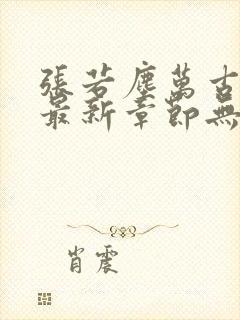 張若塵萬古
最新章節無
肖震